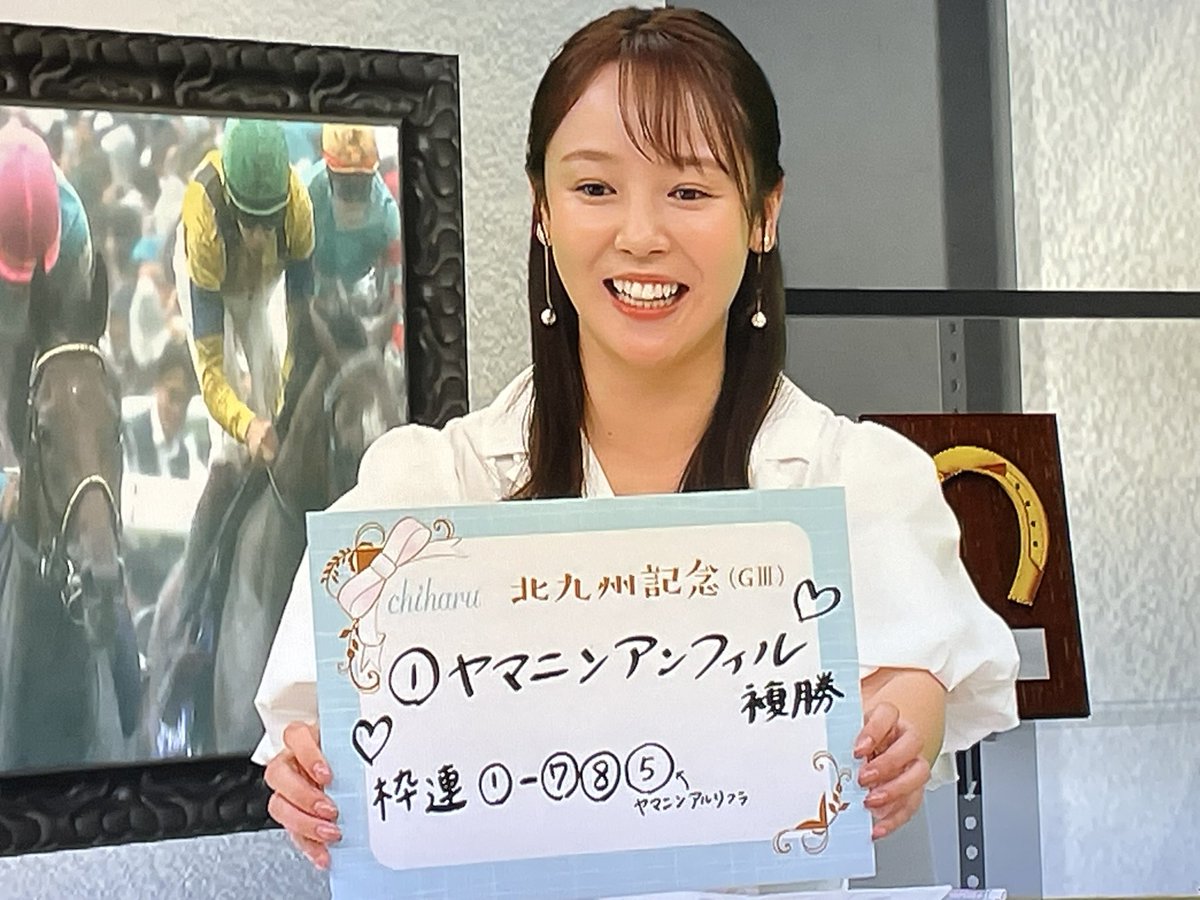 chiharu 北九州記念(GⅢ)
①ヤマニンアンフィル
複勝
枠連 ①-⑦⑧⑤
ヤマニンアルリフラ